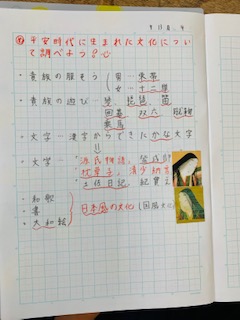 平安時代に生まれた文化につい
て調べよう
・貴族の服そう 男－束帯
女－十二単
・貴族の遊び 琴 琵琶 笛
囲碁 双六 蹴鞠
乗馬
・文字－漢字からできたかな文字
・文学－源氏物語，紫式部
枕草子，清少納言
土佐日記，紀貫之
・和歌
・書
・大和絵
日本風の文化（国風文化